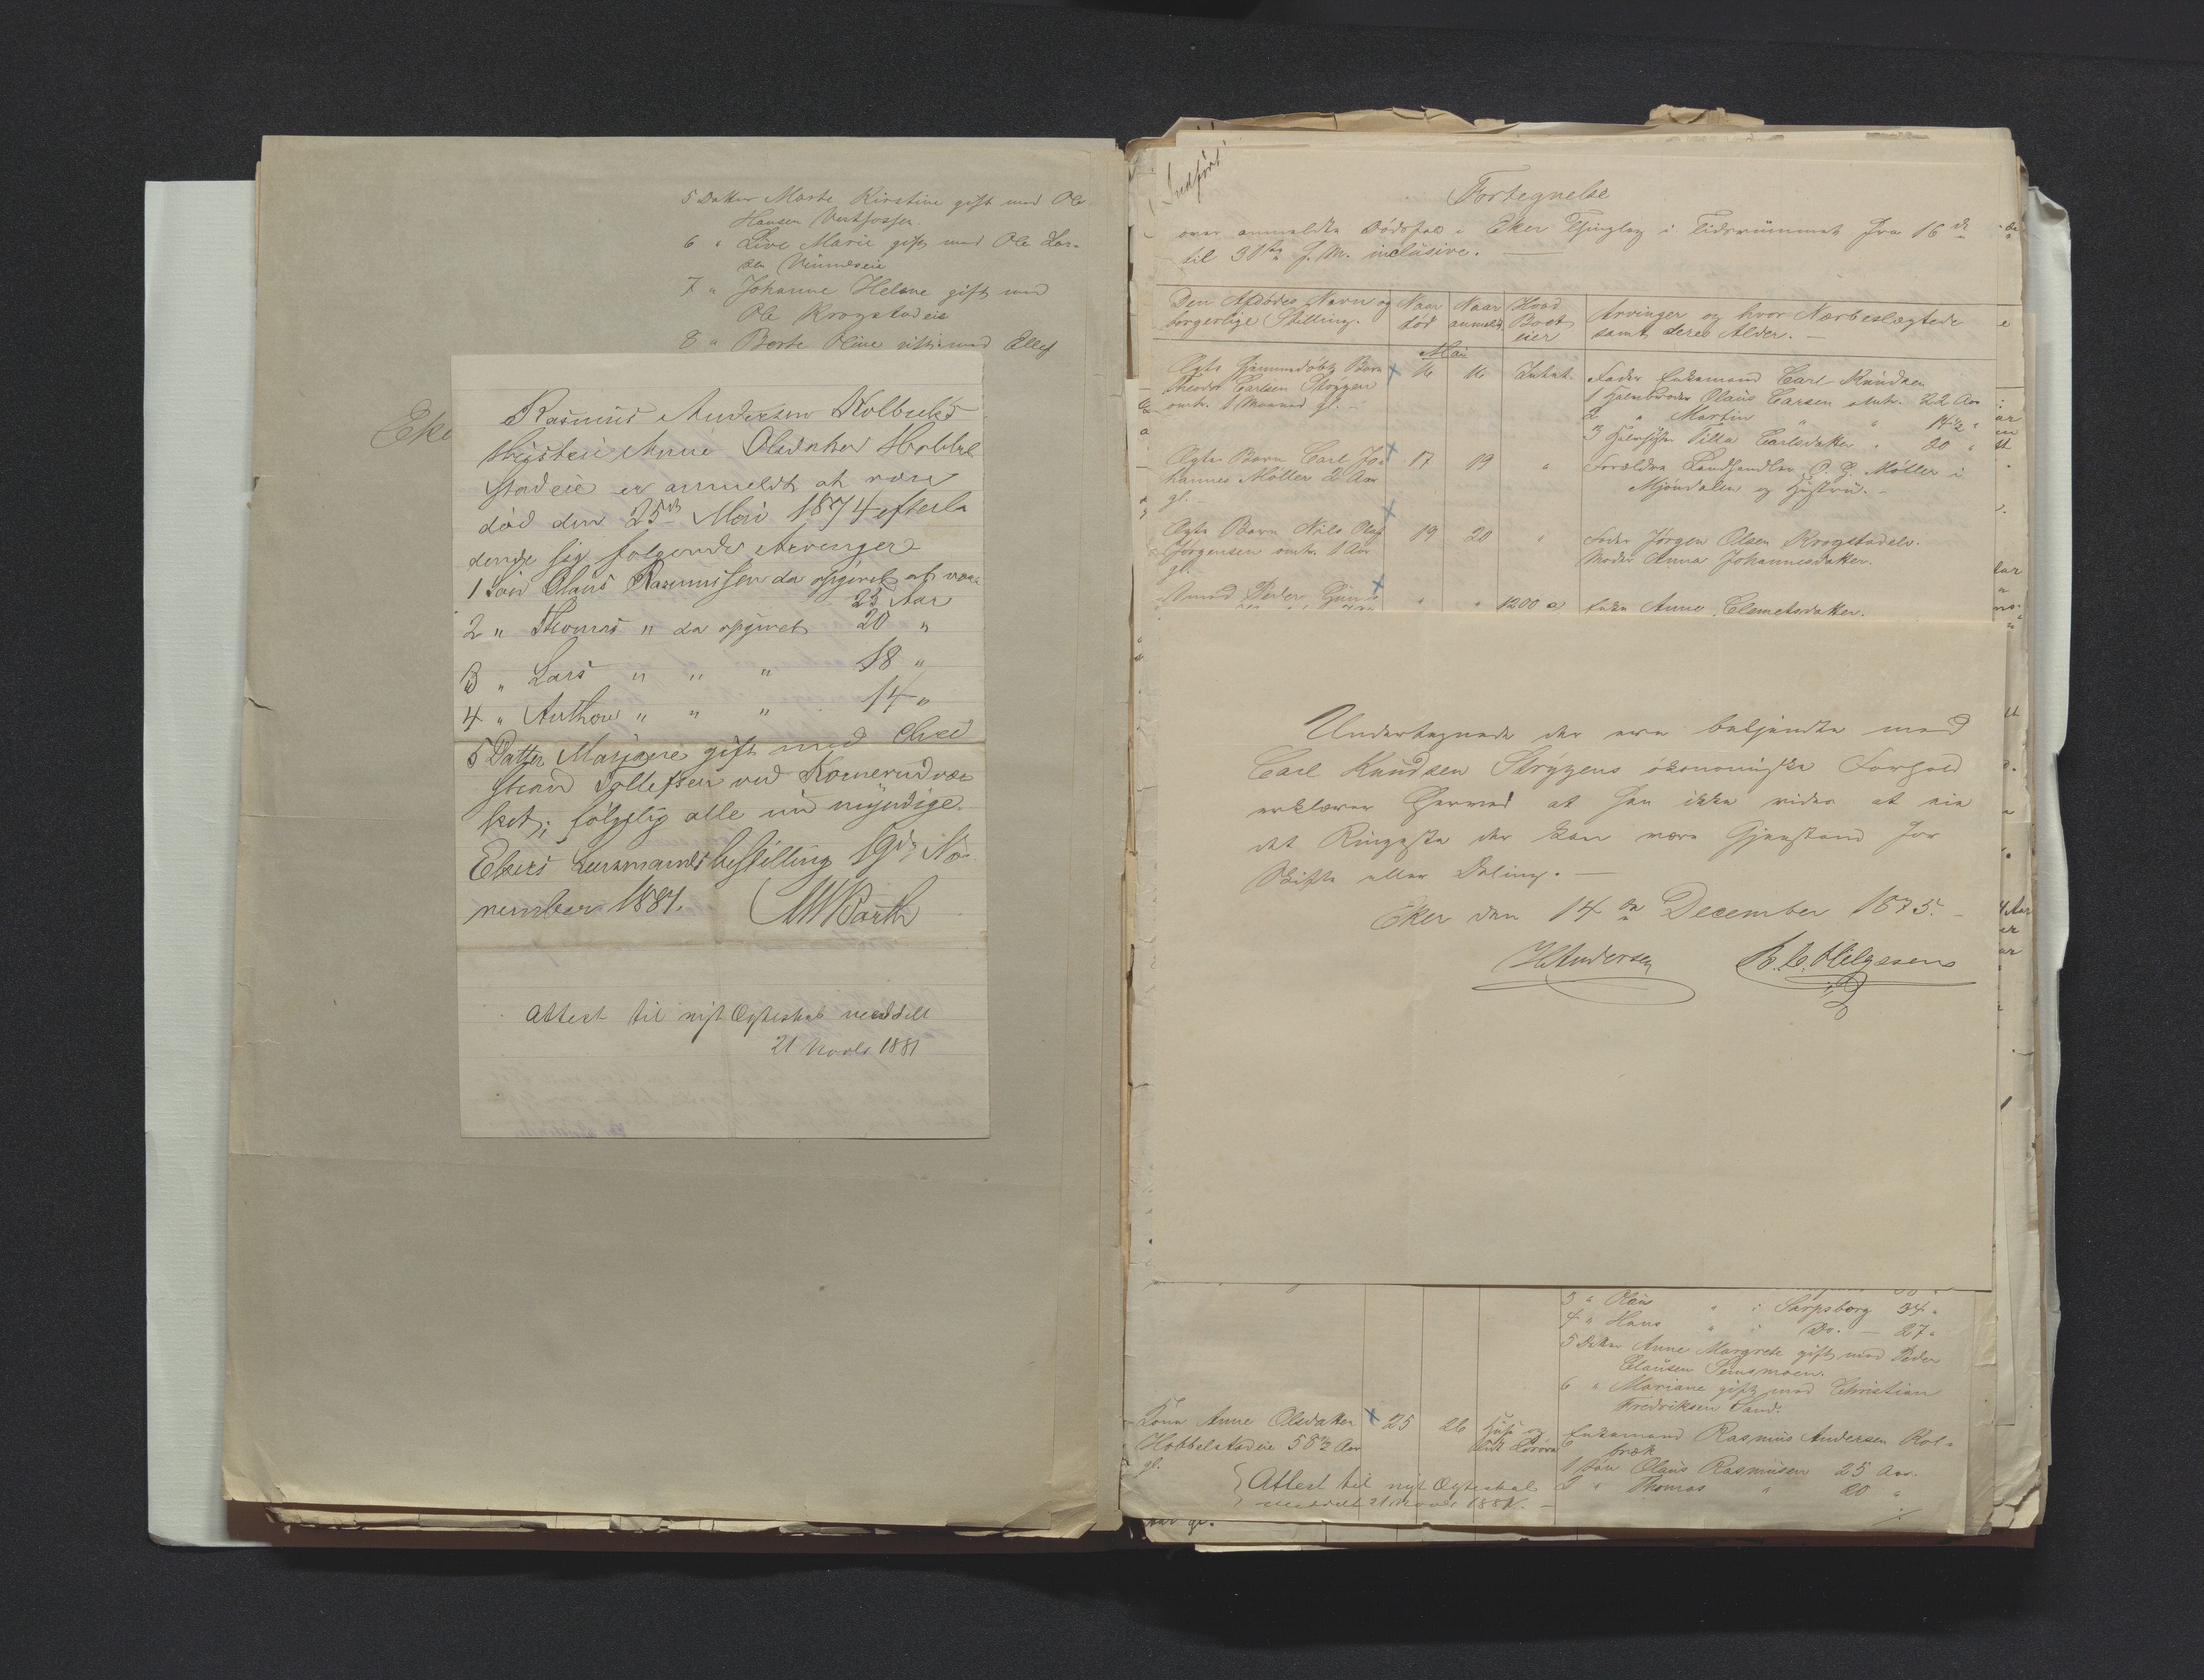 5 Datter Marte Kirstine gift med Ole
Hansen Vestfossen.
6 " Live Marie gift med Ole Lar-
sen
7 " Johanne Helene gift med
Ole Krogstadeie
8 " Berte Oline gift med Ellef
Eke
Rasmus Andersen Kolbræks
Hustru Anne Olsdatter Hobbel
stadeie er anmeldt at være
død den 25de Mai 1874 efterla
dende sig følgende Arvinger
1 Søn Olaus Rasmussen da opgivet at være
25 Aar
2 " Thomas " da opgivet 20 "
3 " Lars " " " 18 "
4 " Anthon " " " 14 "
5 Datter Mariane gift med Chri
stian Tollefsen ved Komerudvær
ket; følgelig alle nu myndige.
Ekers Lensmandsbestilling 19de No
vember 1881.
MWBarth
Attest til nyt Ægteskab meddelt
21 Novbr 1881
Indført
Fortegnelse
over anmeldte Dødsfald i Eker Thinglag i Tidsrummet fra 16de
til 31te f. M. inclusive.
Den Afdødes Navn og
borgerlige Stilling.
Naar
død
Naar
anmeldt
Hvad
Boet
eier
Arvinger og hvor Nærbeslægtede
samt deres Alder.
Mai
Ægte hjemmedøbt Barn
Theodor Carlsen Stryggen
omtr. 1 Maaned gl.
16 16 Intet.
Fader Enkemand Carl Knudsen
1 Halvbroder Olaus Carsen omtr. 22 Aar
2 " Martin " " 14½ "
3 Halvsøster Tilla Carlsdatter " 20 "
Ægte Barn Carl Jo-
hannes Møller 2 Aar
gl.
17 19 "
Forældre Landhandler O. G. Møller i
Mjøndalen og Hustru.
Ægte Barn Nils Olaf
Jørgensen omtr. 1 Aar
gl.
19 20 "
Fader Jørgen Olsen Krogstadeie.
Moder Anna Johannesdatter.
Peder
" " 1200
Enke Anne Clemetsdatter.
Undertegnede der ere bekjendte med
Carl Knudsen Stryggens økonomiske Forhold
erklærer herved at han ikke vides at eie
det Ringeste der kan være Gjenstand for
Skifte eller Deling.
Eker den 14de December 1875.
H Andersen B. C. Helgesens
3 " Olaus " i Sarpsborg 34 "
4 " Hans " i Do. 27 "
5 Datter Anne Margrete gift med Peder
Clausen
6 " Mariane gift med Christian
Fredriksen Sand.
Kone Anne Olsdatter
Hobbelstadeie 58½ Aar
gl.
25 26
Enkemand Rasmus Andersen Kol-
bræk
1 Søn Olaus Rasmusen 25 Aar.
2 " Thomas " 20 "
Attest til nyt Ægteskab
meddelt 21 Novbr 1881.